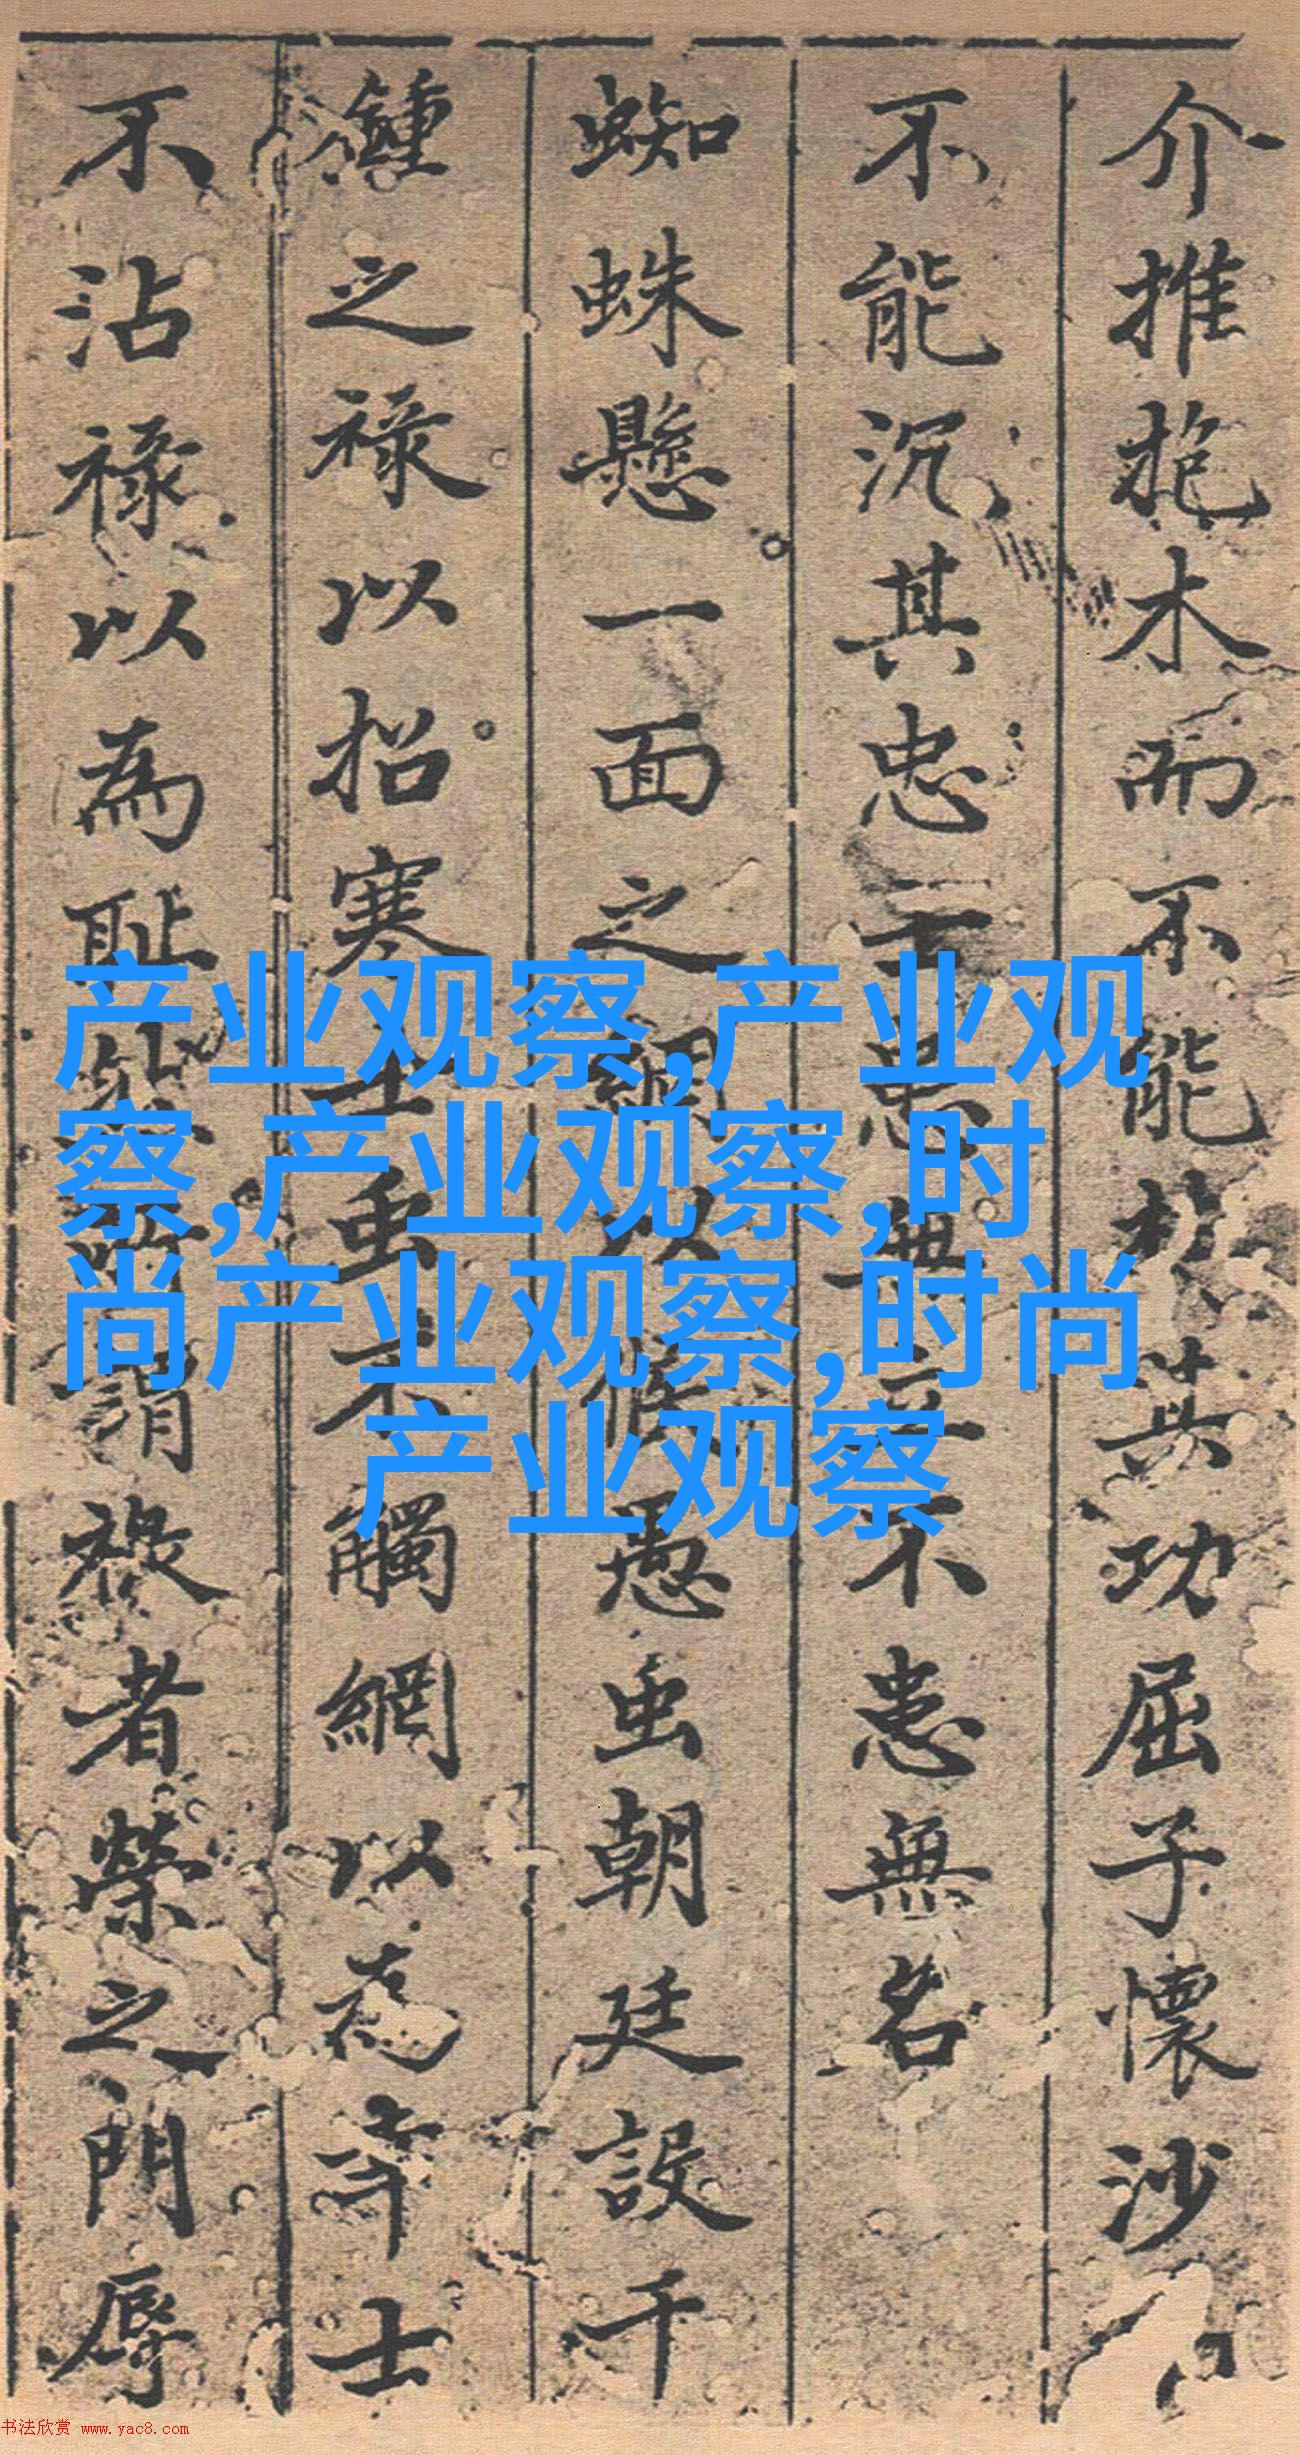 介推抱木而不能扶其功屈子懷沙
不能沉其忠士患無立不患無名
蜘蛛懸一面之網以候愚虫朝廷設千
鍾之祿以招寒士虫不觸網以為
士
不沾祿以為恥
謂祿者榮之門辱
产业观察,产业观
察,产业观察,时
尚产业观察,时尚
产业观察
书法欣赏 www.yac8.com